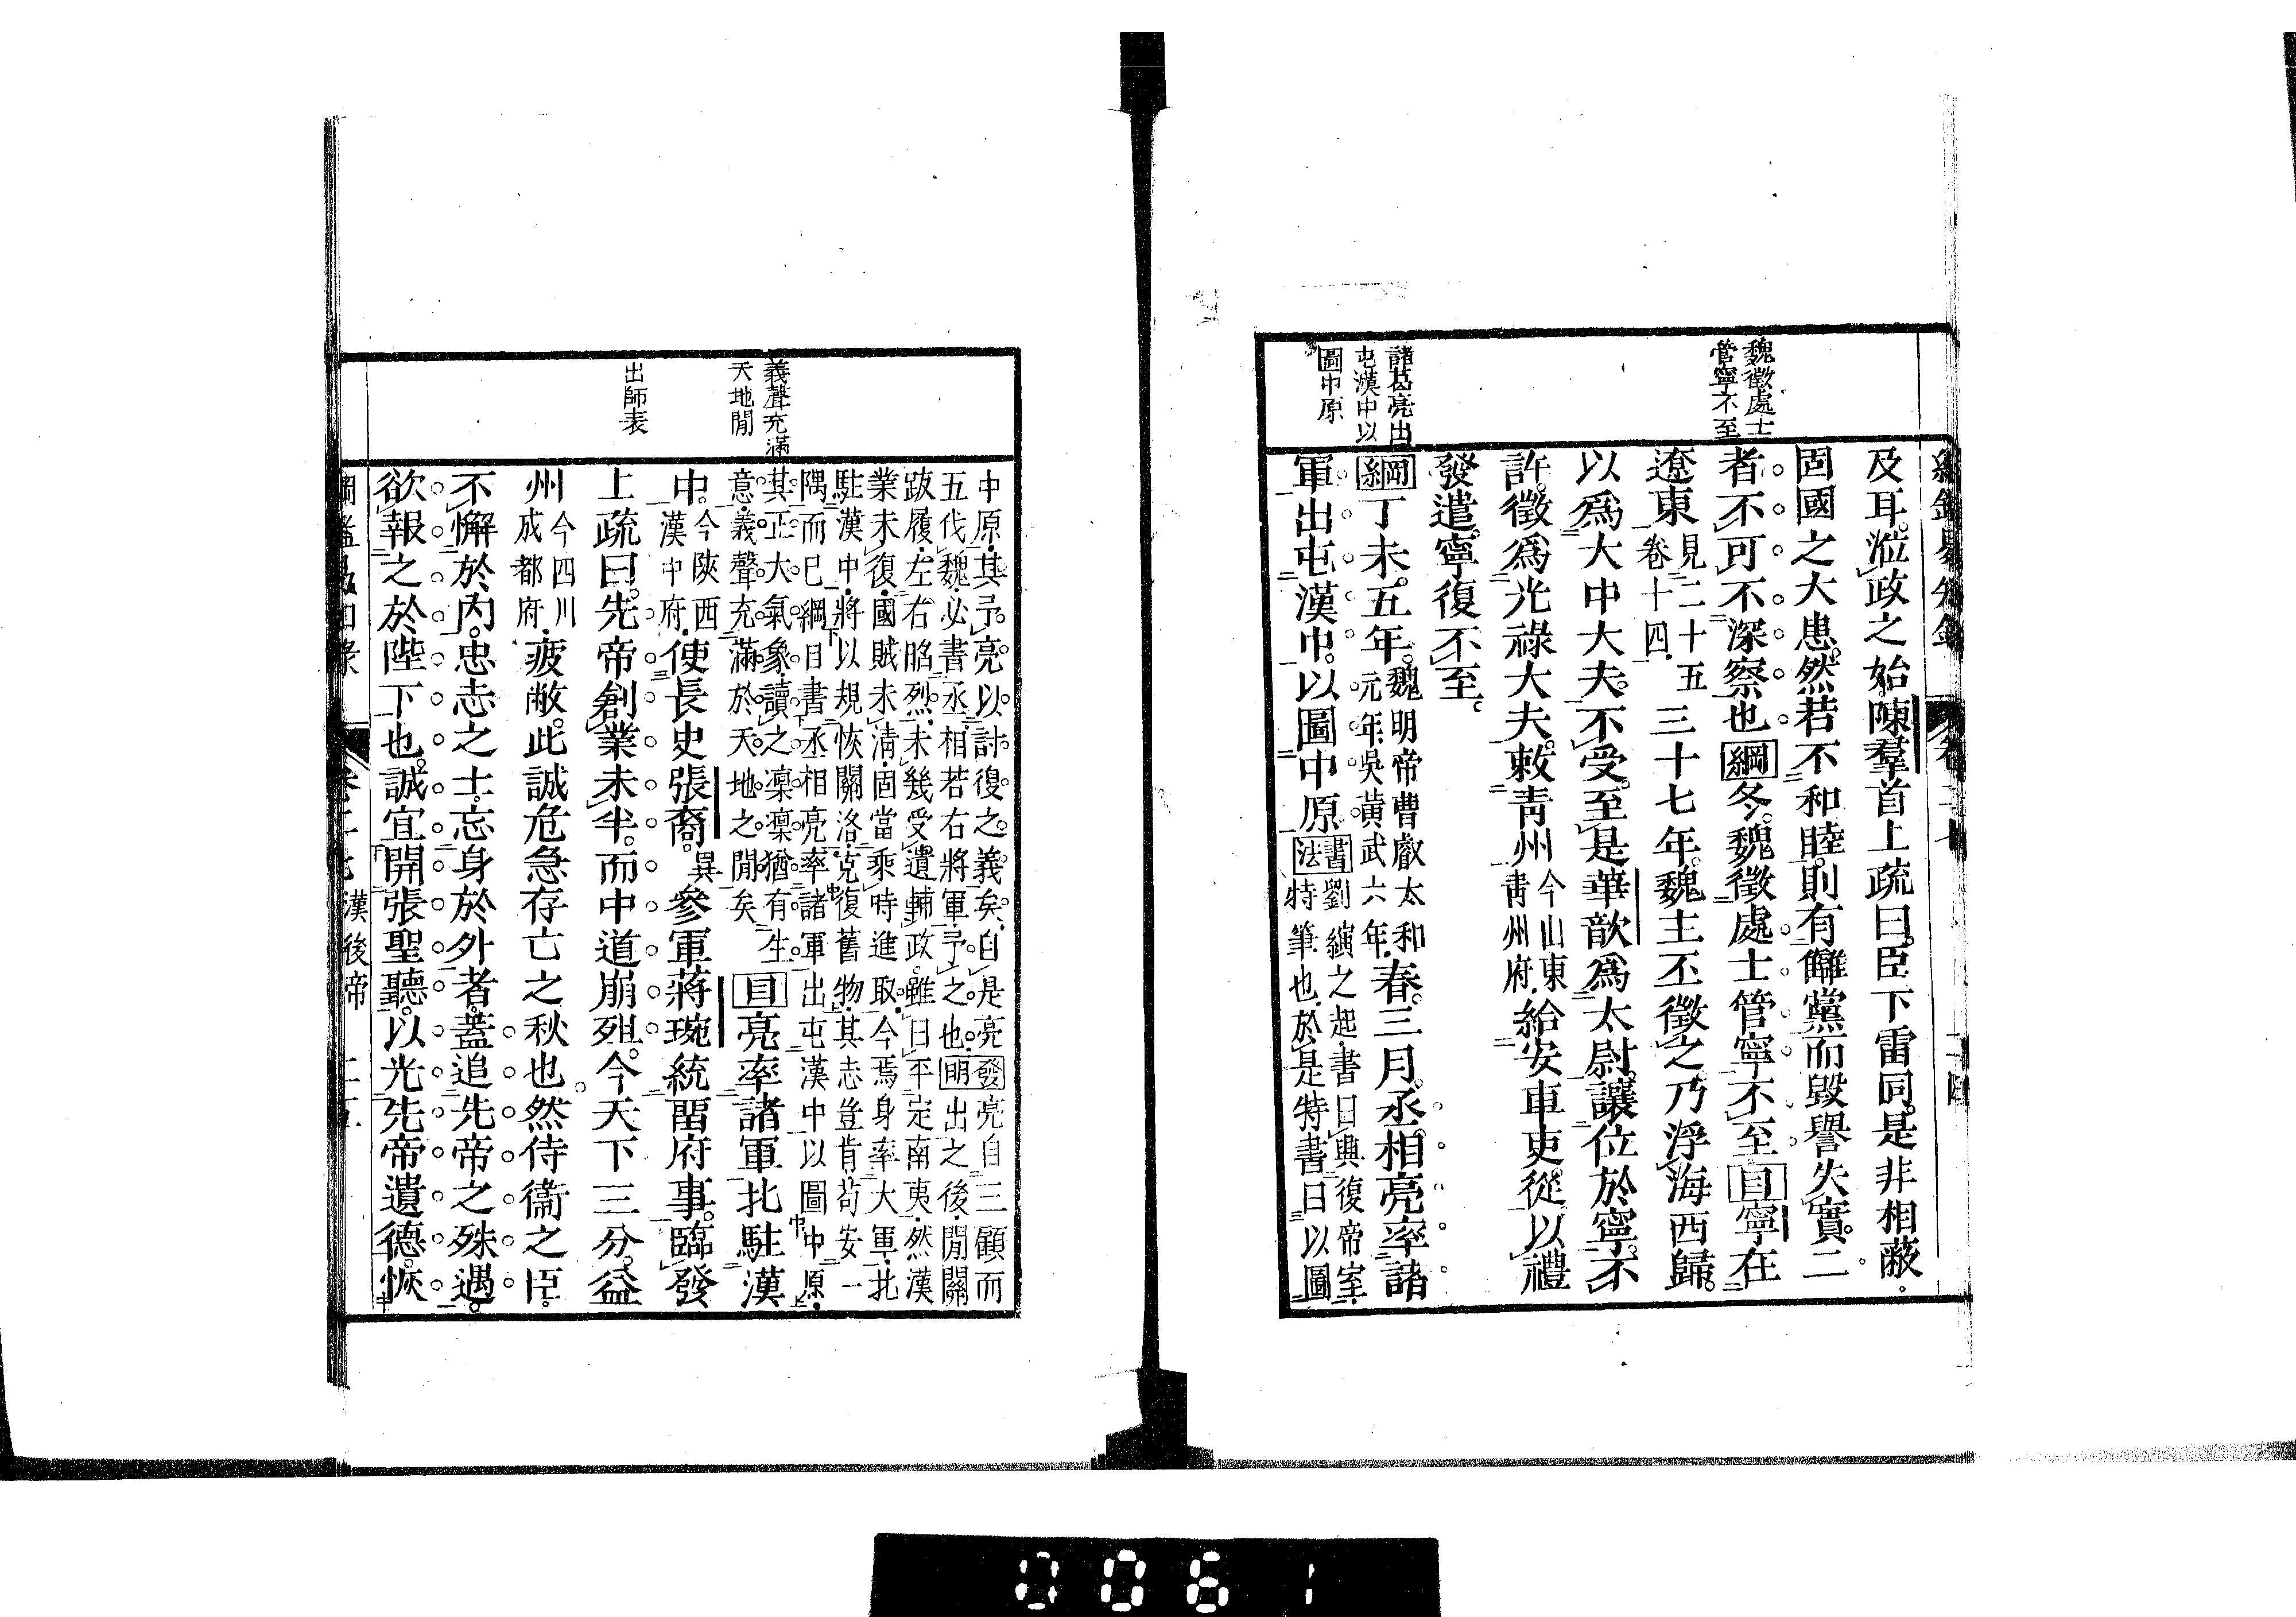 魏徵處士
管寧不至
諸葛亮出
屯漢中以
圖中原
及耳涖政之始陳羣首上疏曰臣下雷同是非相蔽
固國之大患然若不和睦則有讎黨而毀譽失實二
者不可不深察也綱冬魏徵處士管寧不至目寧在
遼東見二十五卷十四三十七年魏主丕徵之乃浮海西歸
以爲大中大夫不受至是華歆爲太尉讓位於寧不
許徵爲光祿大夫敕青州今山東青州府給安車吏從以禮
發遣寧復不至
綱丁未五年魏明帝曹叡太和元年吳黃武六年春三月丞相亮率諸
軍出屯漢中以圖中原書法劉縯之起書曰興復帝室特筆也於是特書曰以圖
義聲充滿
天地閒
出師表
中原其予亮以討復之義矣自是亮
五伐魏必書丞相若右將軍予之也發明亮自三顧而出之後閒關
跋履左右昭烈未幾受遺輔政雖曰平定南夷然漢
業未復國賊未淸固當乘時進取今焉身率大軍北
駐漢中將以規恢關洛克復舊物其志豈肯苟安一
隅而已綱目書丞相亮率諸軍出屯漢中以圖中原
其正大氣象讀之凜凜猶有生
意義聲充滿於天地之閒矣目亮率諸軍北駐漢
中今陝西漢中府使長史張裔異參軍蔣琬統畱府事臨發
上疏曰先帝創業未半而中道崩殂今天下三分益
州今四川成都府疲敝此誠危急存亡之秋也然侍衞之臣
不懈於內忠志之士忘身於外者蓋追先帝之殊遇
欲報之於陛下也誠宜開張聖聽以光先帝遺德恢
漢後帝